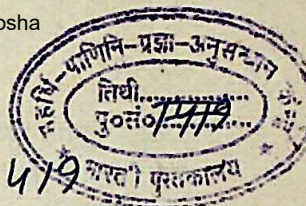 osha
महर्षि-पाणिनि-प्रज्ञा-अनुसन्धान
तिथी..................
पु०सं० 1419
भारती पुस्तकालय
419